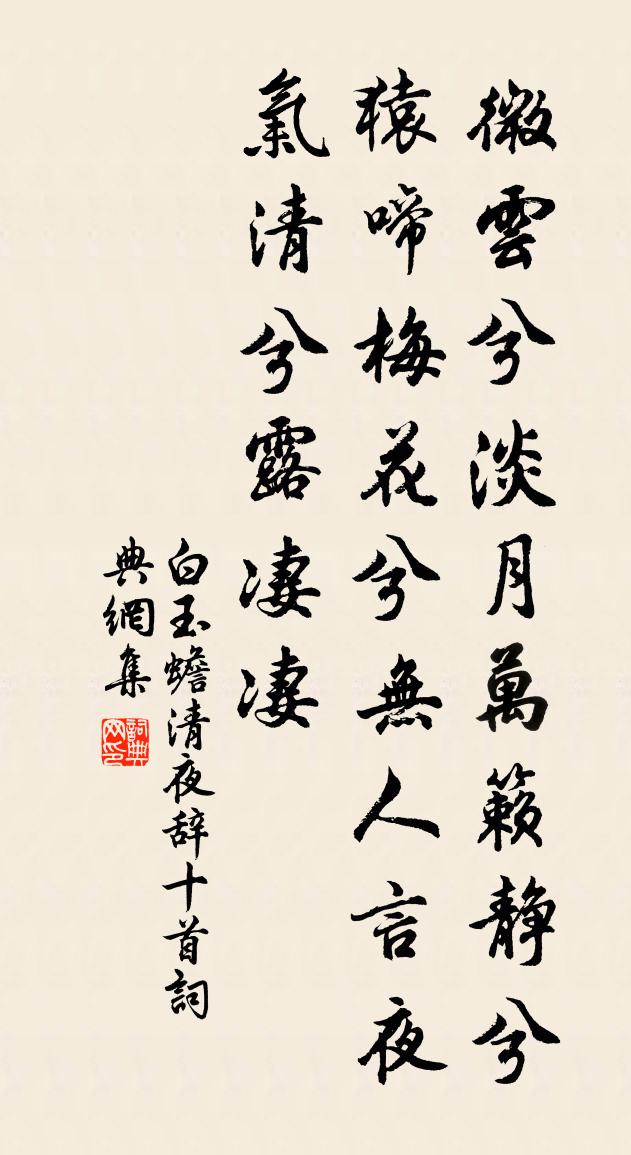 微雲兮淡月萬籟静兮
猿啼梅花兮無人言夜
氣清兮露凄凄
白玉蟾清夜辞十首詞
典網集
詞典
网印